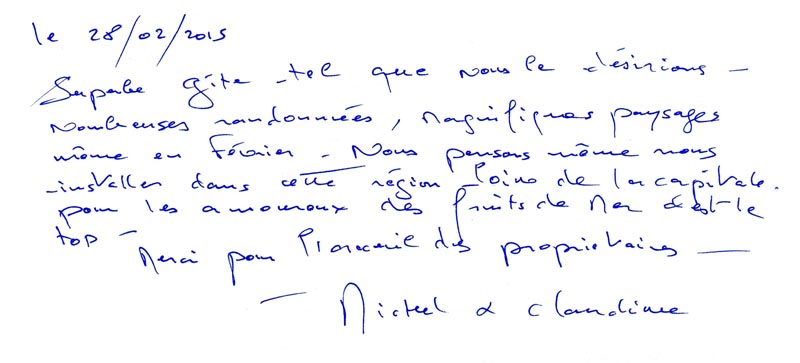 le 28/02/2015
Superbe gîte - tel que nous le désirions -
Nombreuses randonnées, magnifiques paysages
même en Février - Nous pensons même nous
installer dans cette région loins de la capitale.
pour les amoureux des fruits de Mer c'est le
top -
Merci pour l'accueil des propriétaires -
- Michel & Claudine